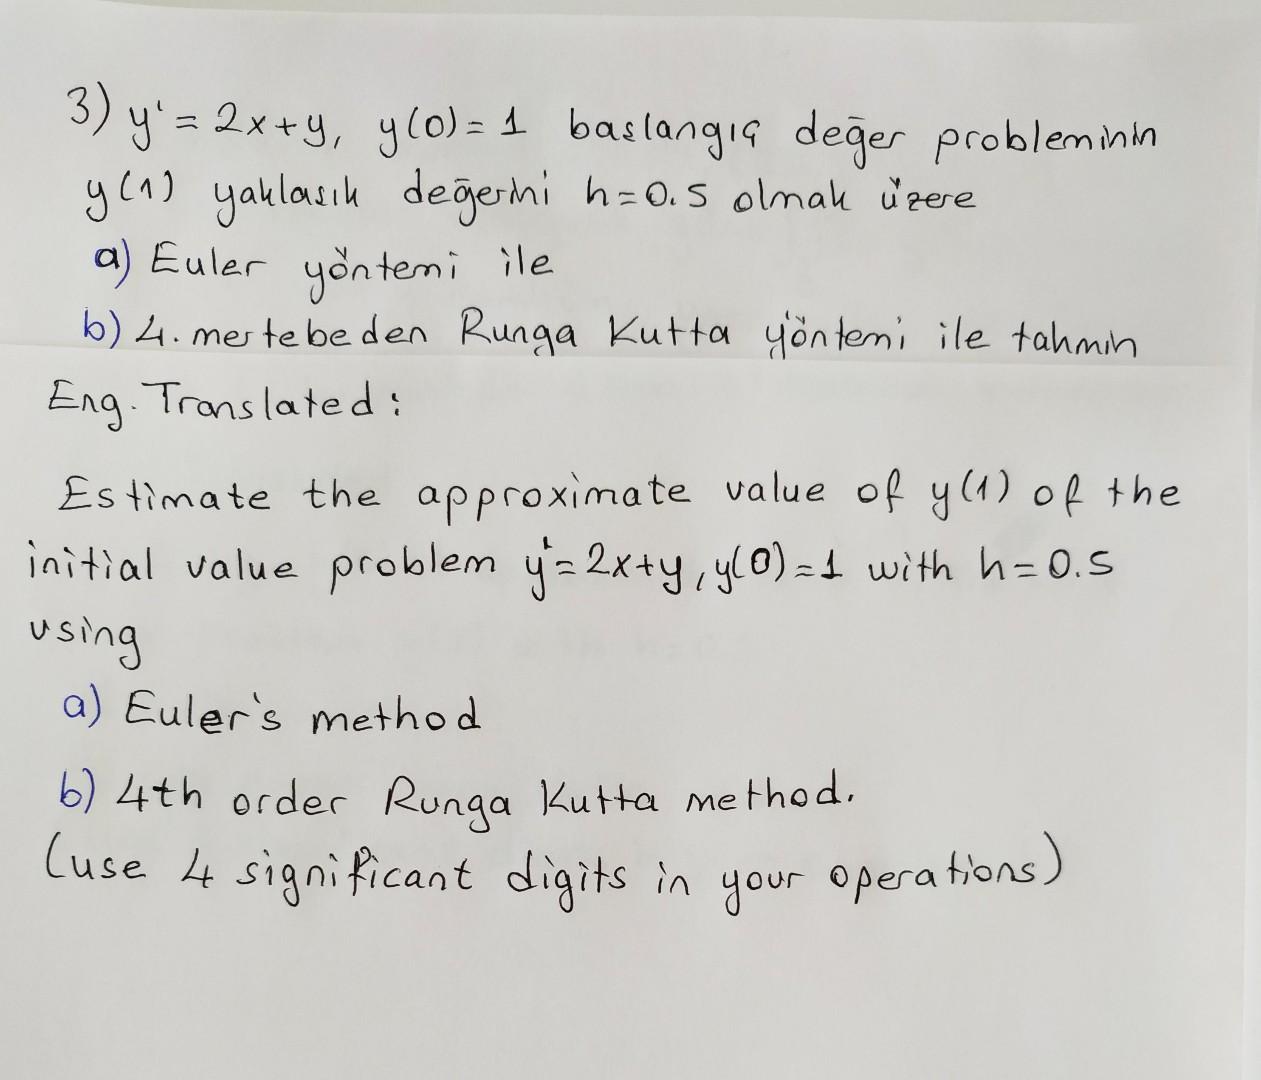 3) y' = 2x+y, y(0) = 1 baslangıç değer probleminin
y(1) yaklasık değerini h=0.5 olmak üzere
a) Euler yöntemi ile
b) 4. mertebeden Runga Kutta yöntemi ile tahmin
Eng. Translated:
Estimate the approximate value of y(1) of the
initial value problem y'=2x+y, y(0)=1 with h=0.5
using
a) Euler's method
b) 4th order Runga Kutta method.
(use 4 significant digits in your operations)